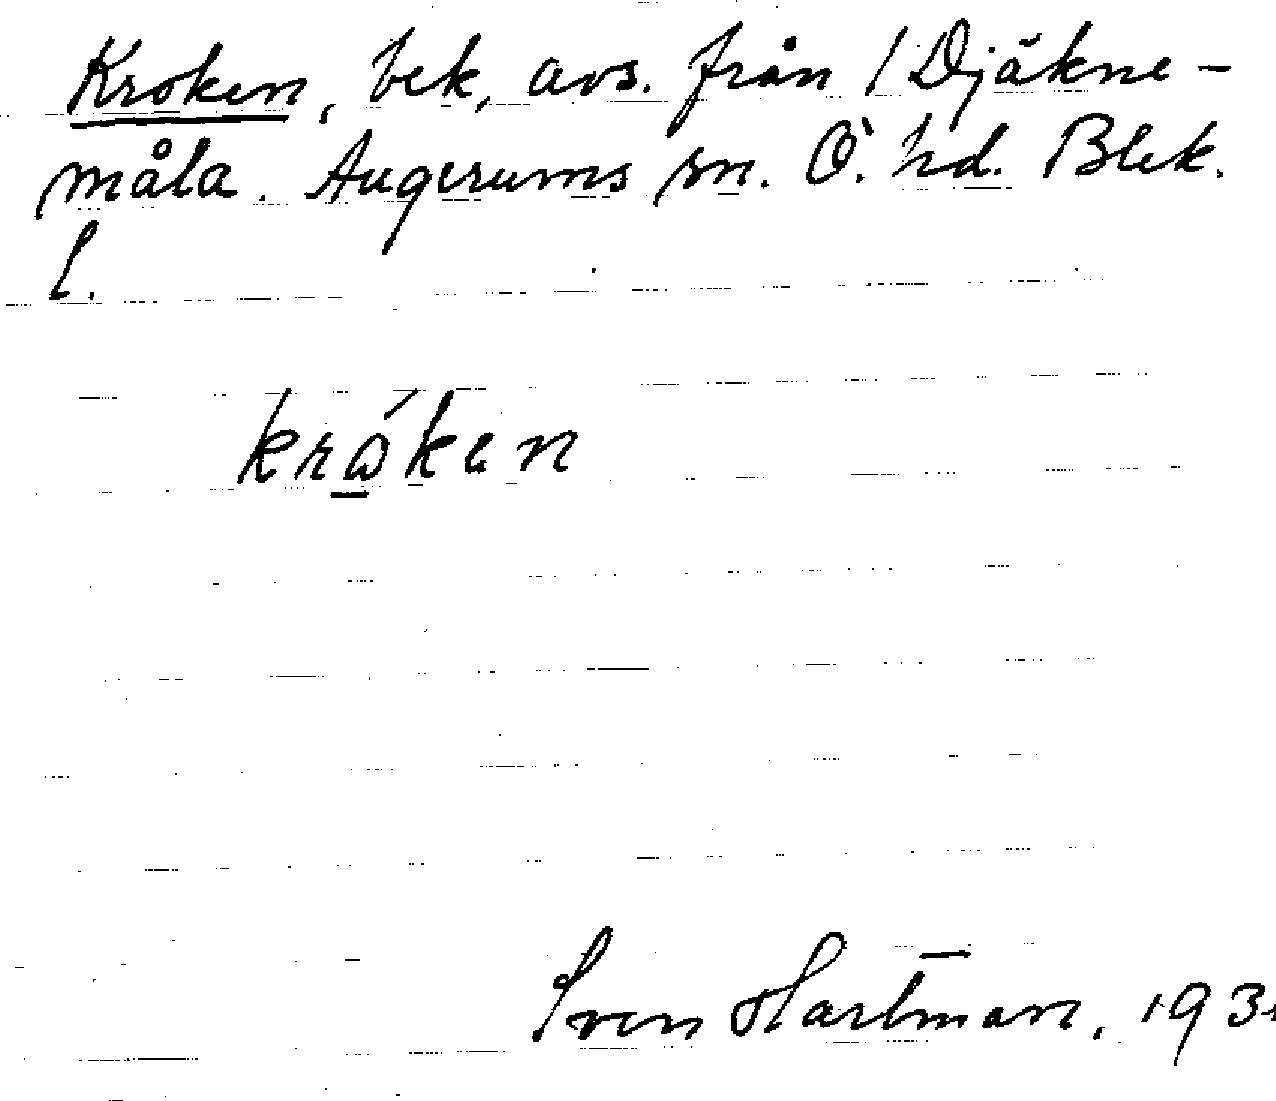 Kroken, bek, avs. från /Djäkne-
måla. Augerums sn. Ö. hd. Blek.
l.
króken
Sven Hartman, 193